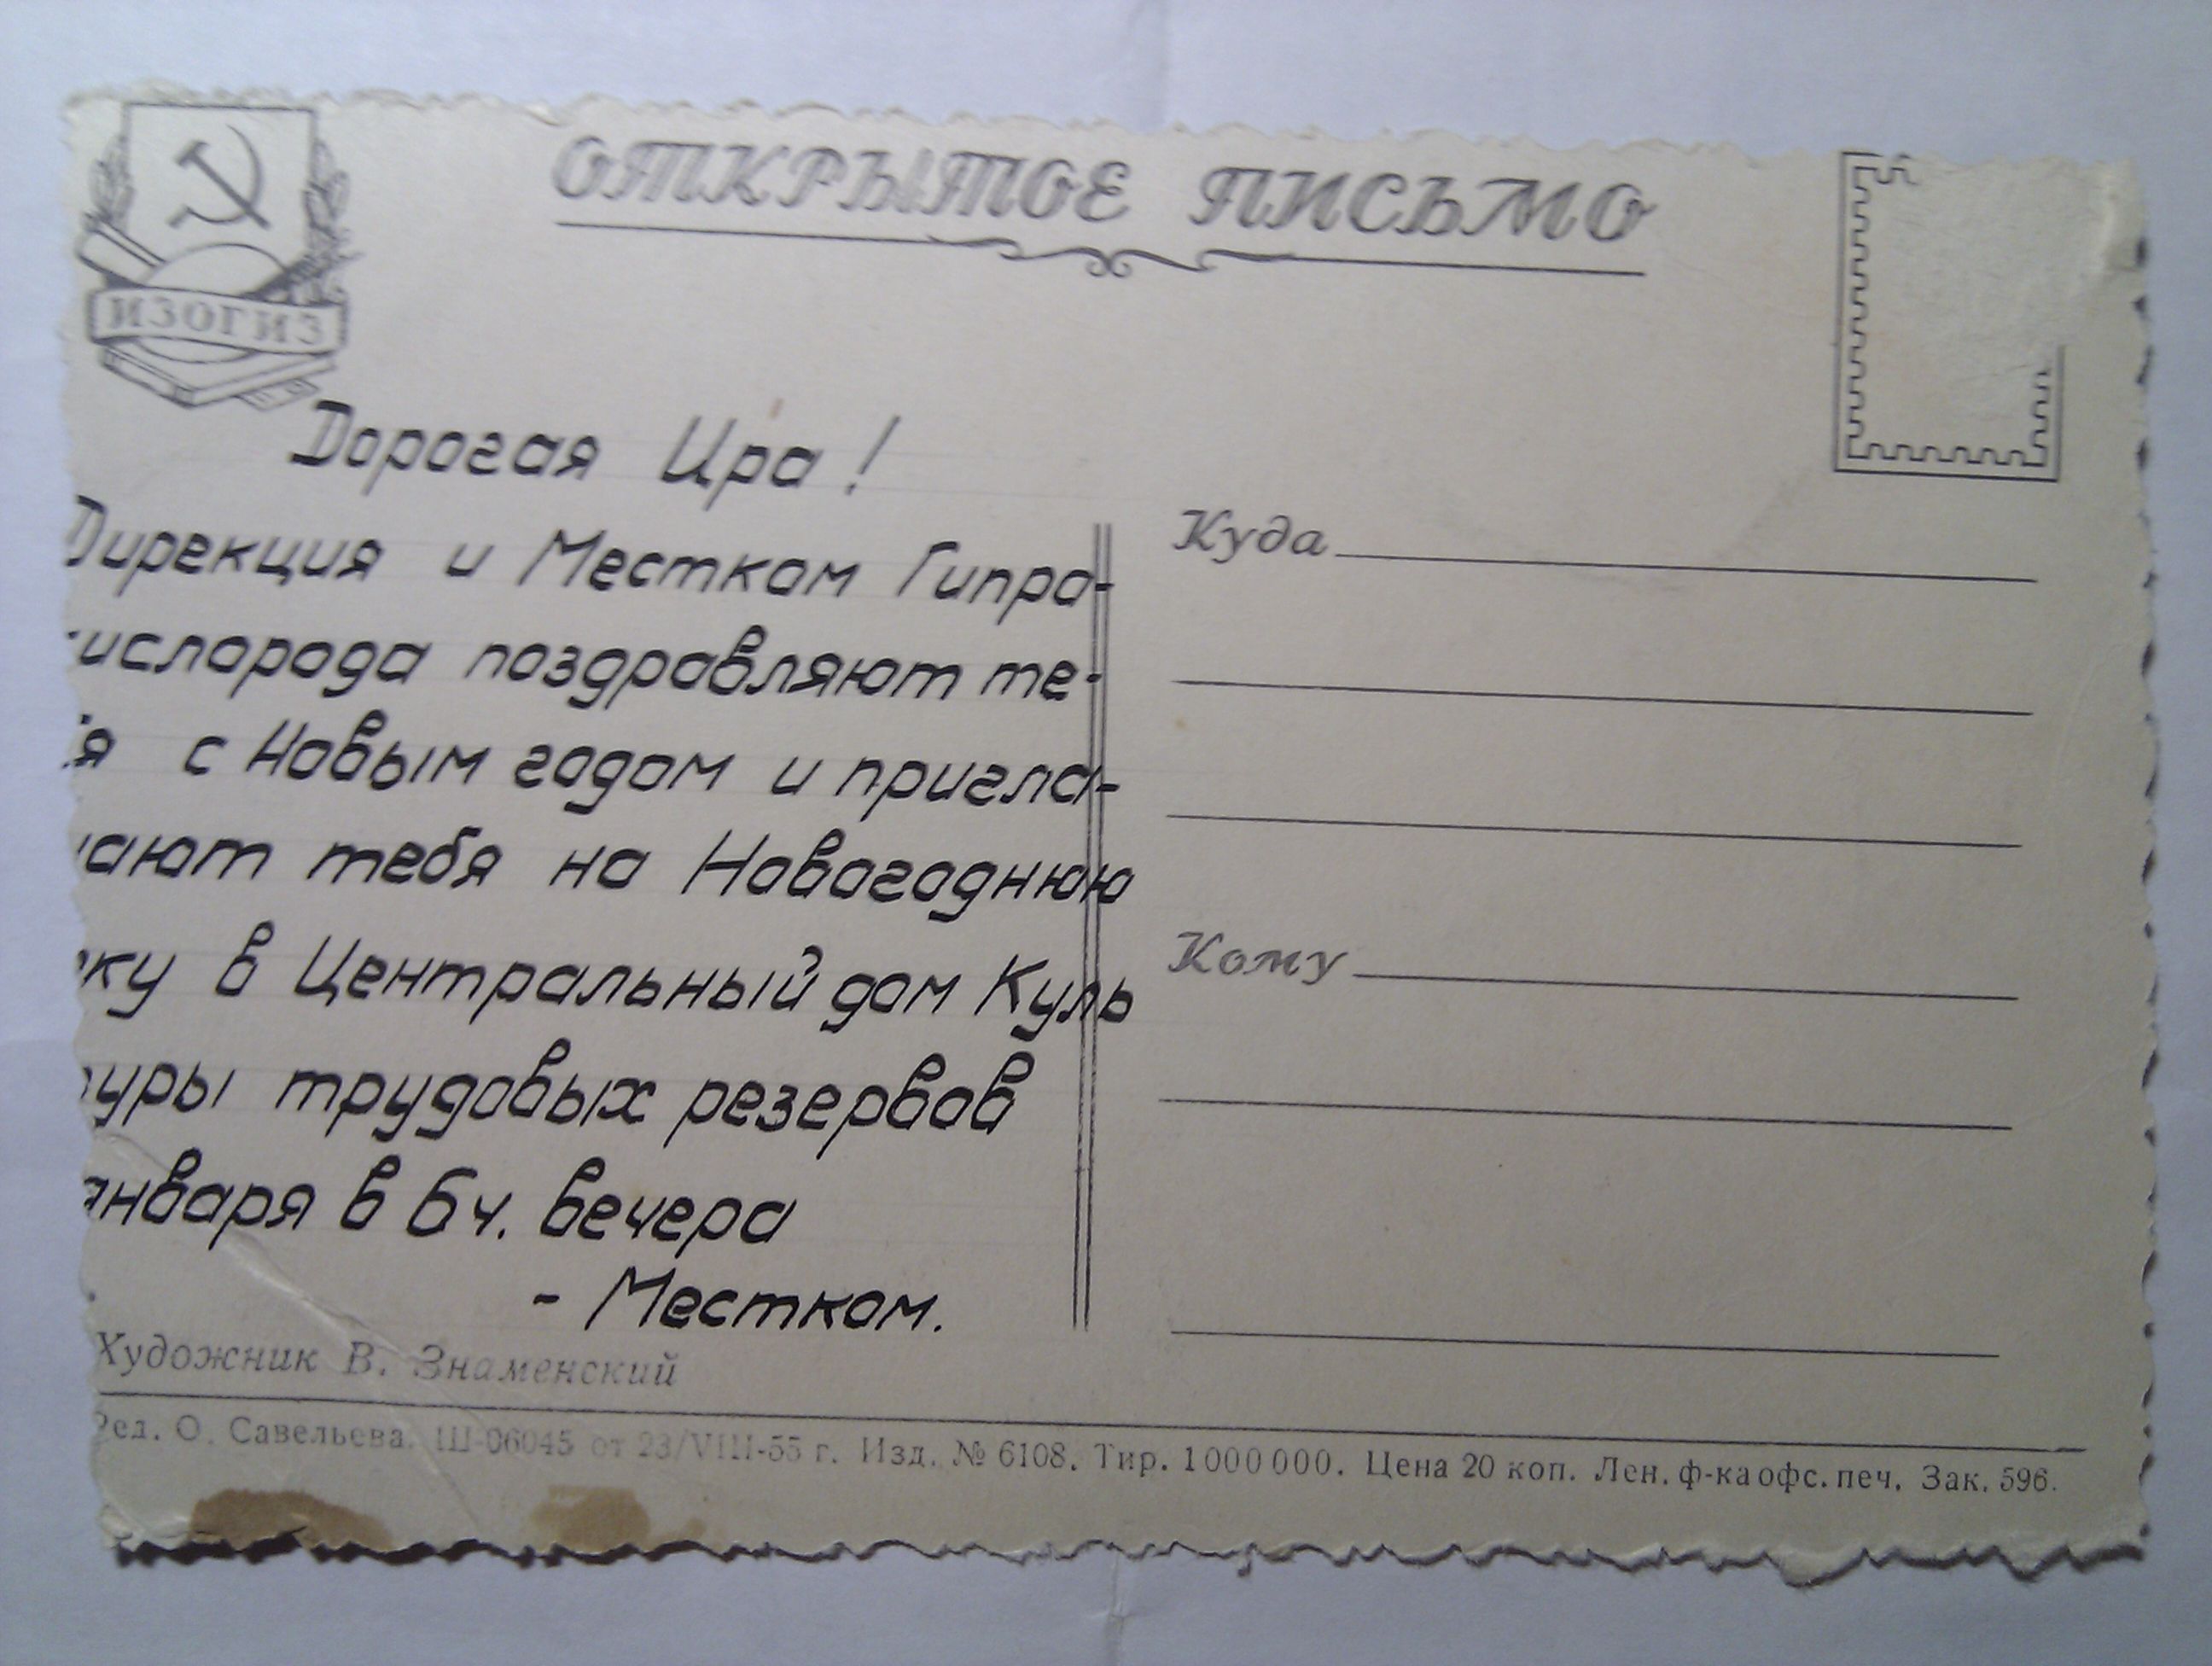 ОТКРЫТОЕ ПИСЬМО
ИЗОГИЗ
Дорогая Ира!
Дирекция и Местком Гипро-
ислорода поздравляют те-
я с Новым годом и пригла-
ают тебя на Новогоднюю
ку в Центральный дом Куль
уры трудовых резервов
января в 6ч. вечера
- Местком.
Куда
Кому
Художник В. Знаменский
Ред. О. Савельева. Ш-06045 от 23/VIII-55 г. Изд. № 6108. Тир. 1000000. Цена 20 коп. Лен. ф-ка офс. печ. Зак. 596.